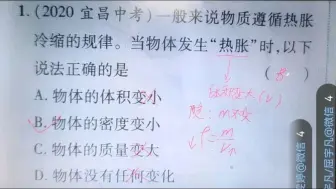 1.(2020 宜昌中考)一般来说物质遵循热胀
冷缩的规律。当物体发生“热胀”时,以下
说法正确的是 ( B )
A. 物体的体积变小
B. 物体的密度变小
C. 物体的质量变大
D. 物体没有任何变化
体积变大(V)
m不变
ρ=m/V